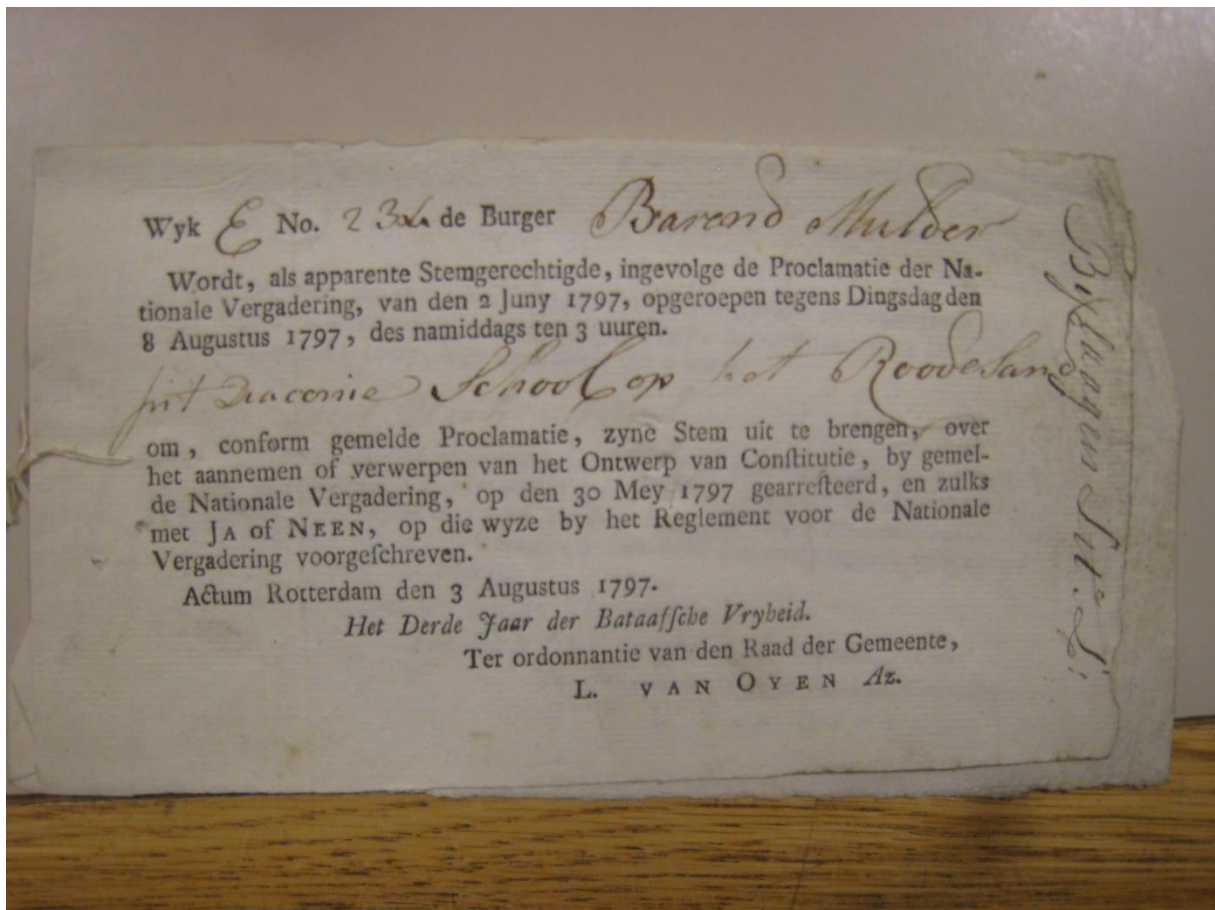 Wyk E No. 232 de Burger Barend Mulder
Wordt, als apparente Stemgerechtigde, ingevolge de Proclamatie der Na-
tionale Vergadering, van den 2 Juny 1797, opgeroepen tegens Dingsdag den
8 Augustus 1797, des namiddags ten 3 uuren.
Diaconie School op het Roodesand
om, conform gemelde Proclamatie, zyne Stem uit te brengen, over
het aannemen of verwerpen van het Ontwerp van Conſtitutie, by gemel-
de Nationale Vergadering, op den 30 Mey 1797 gearreſteerd, en zulks
met JA of NEEN, op die wyze by het Reglement voor de Nationale
Vergadering voorgeſchreven.
Actum Rotterdam den 3 Augustus 1797.
Het Derde Jaar der Bataafſche Vryheid.
Ter ordonnantie van den Raad der Gemeente,
L. VAN OYEN Az.
Bijlaagen